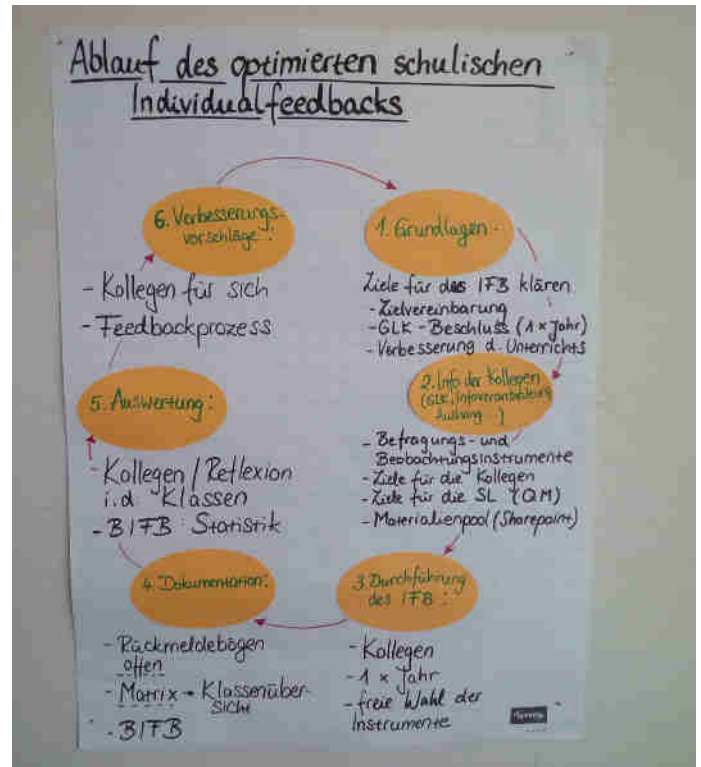 Ablauf des optimierten schulischen
Individualfeedbacks
1. Grundlagen
Ziele für das IFB klären
- Zielvereinbarung
- GLK-Beschluss (1 x Jahr)
- Verbesserung d. Unterrichts
2. Info der Kollegen
(GLK, Infoveranstaltung,
Aushang...)
- Befragungs- und
Beobachtungsinstrumente
- Ziele für die Kollegen
- Ziele für die SL (QM)
- Materialienpool (Sharepoint)
3. Durchführung
des IFB:
- Kollegen
- 1 x Jahr
- freie Wahl der
Instrumente
4. Dokumentation:
- Rückmeldebögen
offen
- Matrix → Klassenüber-
sicht
- BIFB
5. Auswertung:
- Kollegen / Reflexion
i.d Klassen
- BIFB Statistik
6. Verbesserungs-
vorschläge:
- Kollegen für sich
- Feedbackprozess